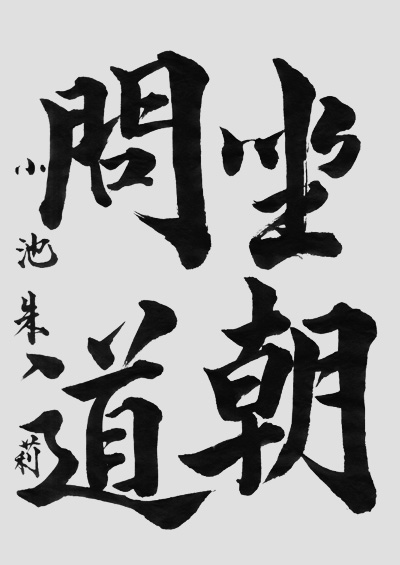 坐朝
問道
小池朱莉